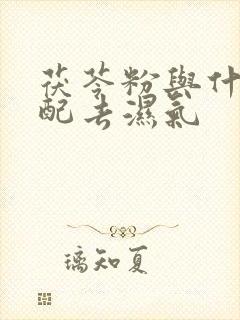 茯苓粉與什
配去濕氣
璃知夏